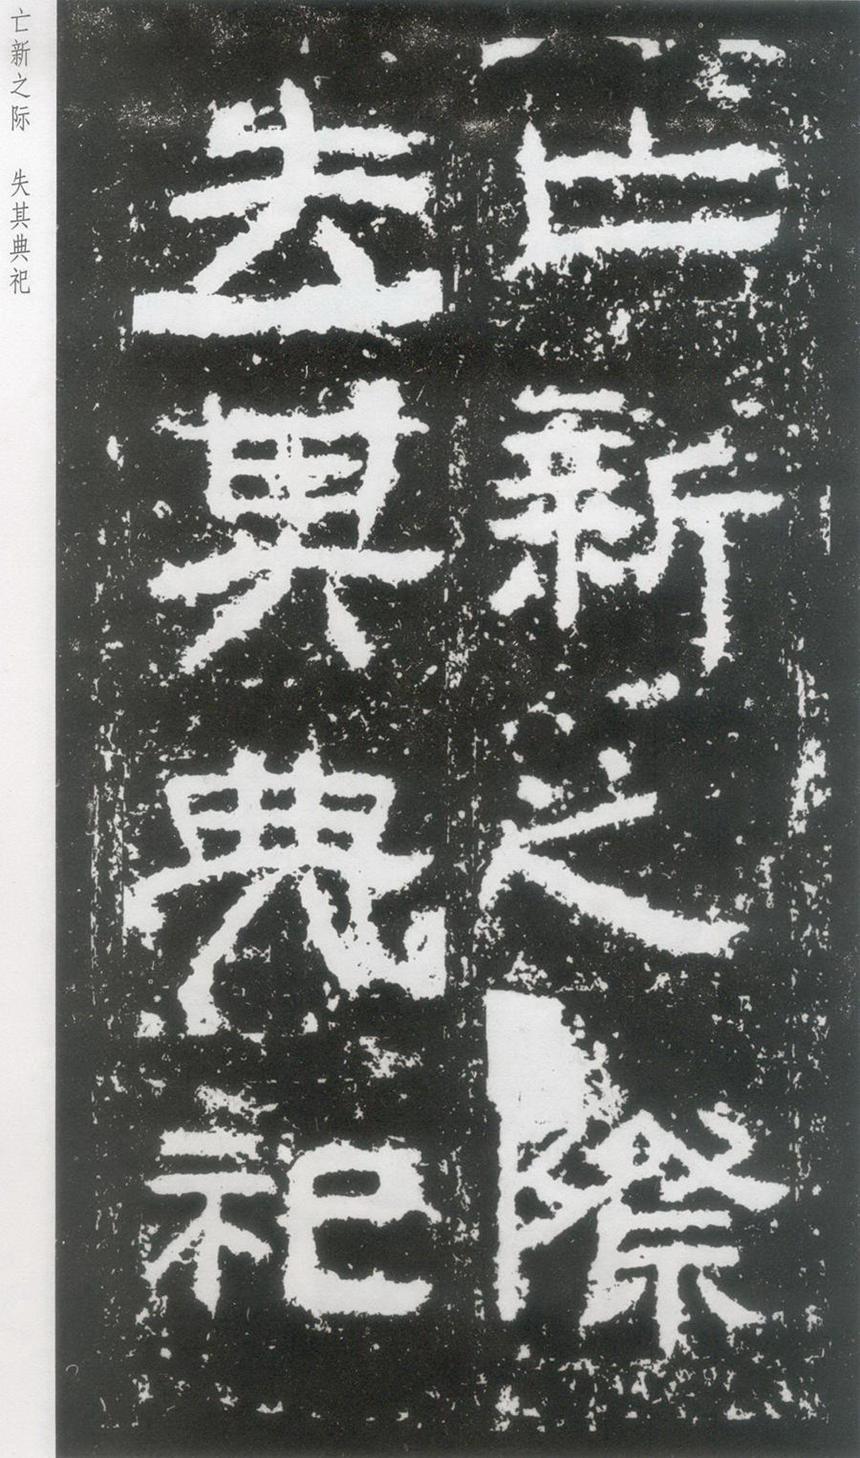 亡新之际 失其典祀
亡新之際
失其典祀